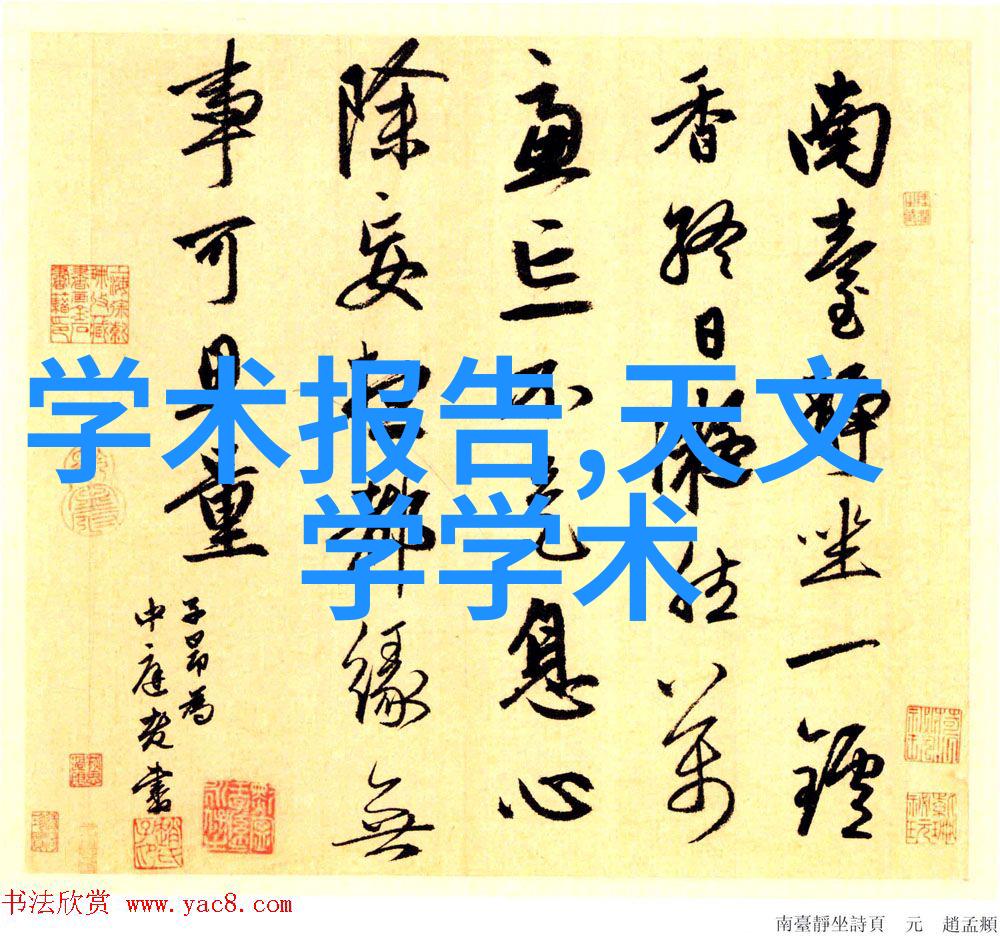 南臺靜坐一鑪
香終日凝然萬
慮亡不是息心
除妄想都緣無
事可量
子昂為
中庭老書
学术报告,天文
学学术
书法欣赏 www.yac8.com
南臺靜坐詩頁 元 趙孟頫